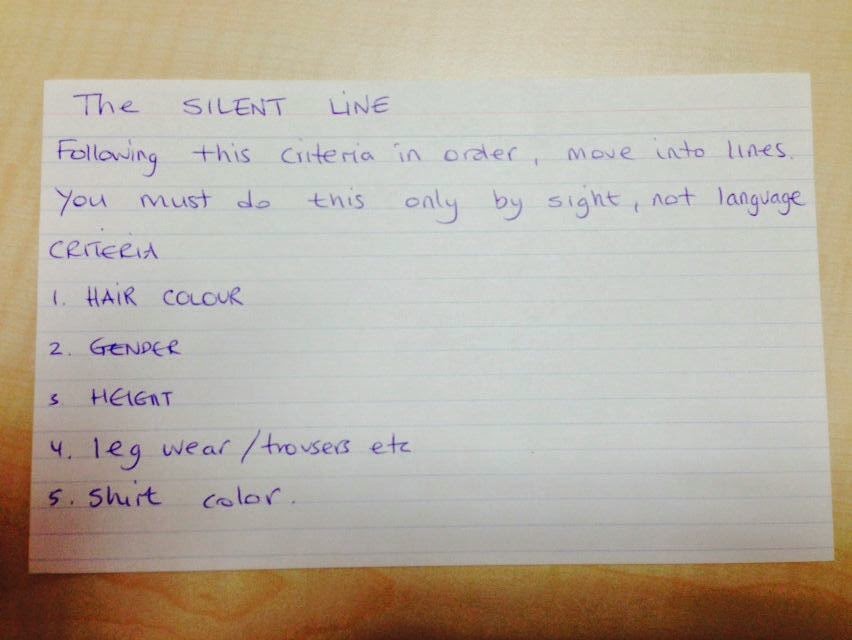 The SILENT LINE
Following this criteria in order, move into lines.
You must do this only by sight, not language
CRITERIA
1. HAIR COLOUR
2. GENDER
3 HEIGHT
4. leg wear/trousers etc
5. Shirt color.